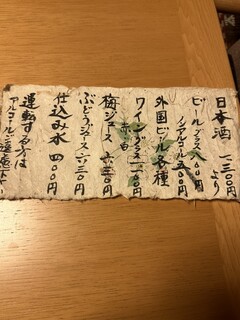 日本酒 一、三〇〇円より
ビール グラス 八〇〇円
ノンアルコール 五〇〇円
外国ビール各種
ワイングラス 一、一〇〇円
赤・白
梅ジュース 六五〇円
ぶどうジュース 六五〇円
仕込み水 四〇〇円
運転する方は
アルコールご遠慮下さい